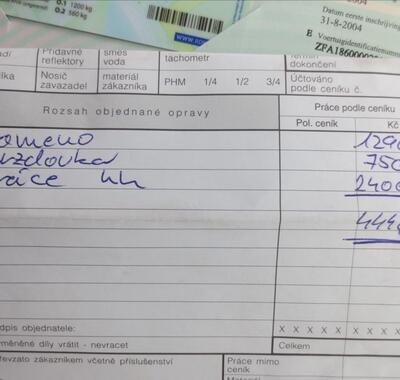 0.1 1200 kg
0.2 560 kg
Datum eerste inschrijving
31-8-2004
E Voertuigidentificatienummer
ZFA186000
Přídavné reflektory
směs voda
tachometr
dokončení
Nosič zavazadel
materiál zákazníka
PHM 1/4 1/2 3/4
Účtováno podle ceníku č.
Rozsah objednané opravy
Práce podle ceníku
Pol. ceník
Kč
rameno 1290
750
práce 4h 2400
444
dpis objednatele: X X X X X X X
yměněné díly vrátit - nevracet
Celkem
evzato zákazníkem včetně příslušenství
Práce mimo ceník